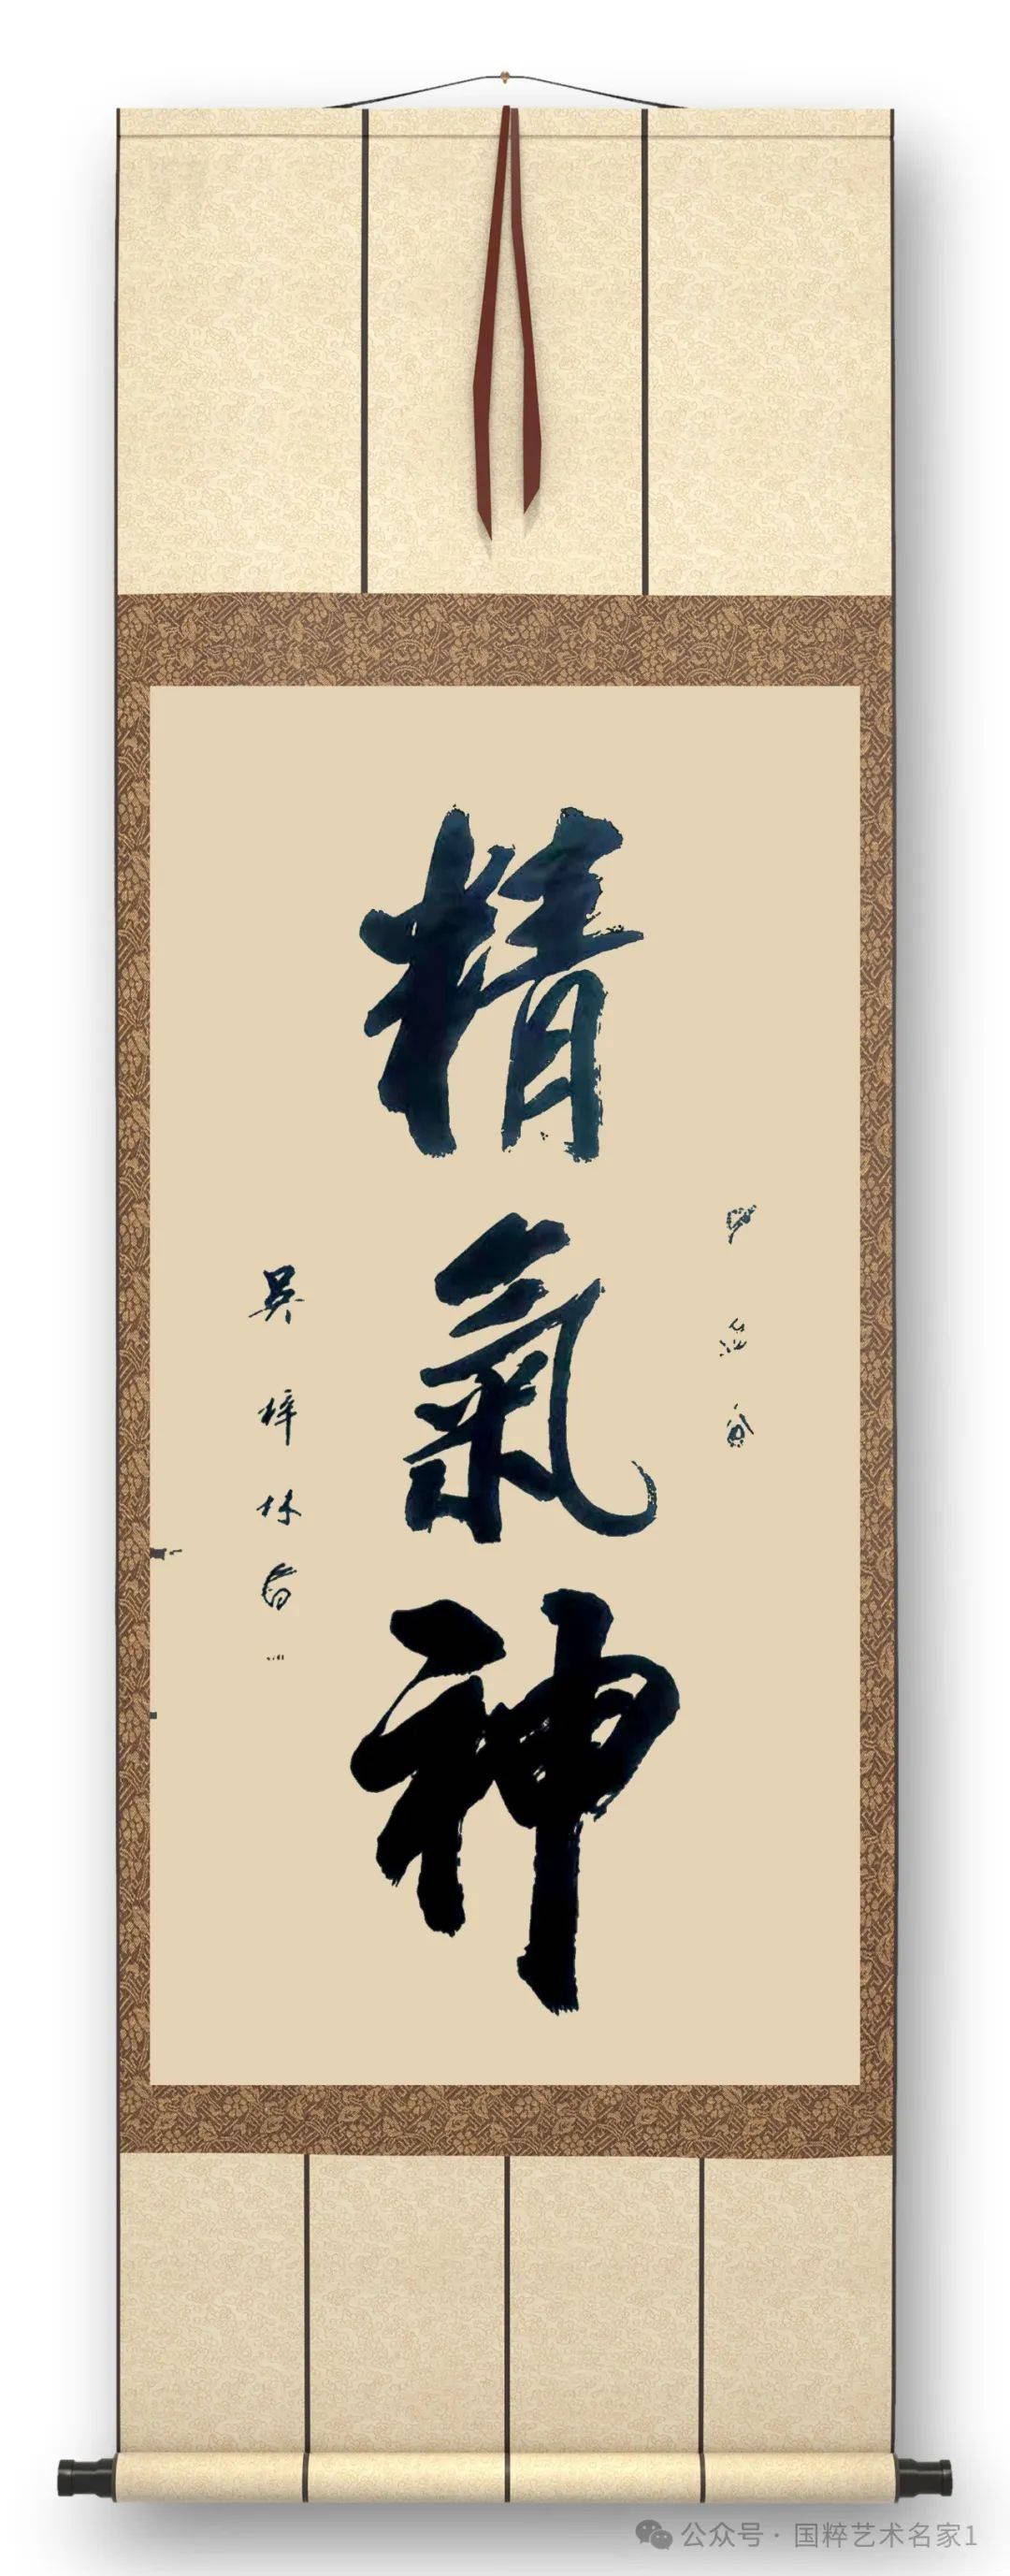 精氣神
吳梓林書
公众号·国粹艺术名家1